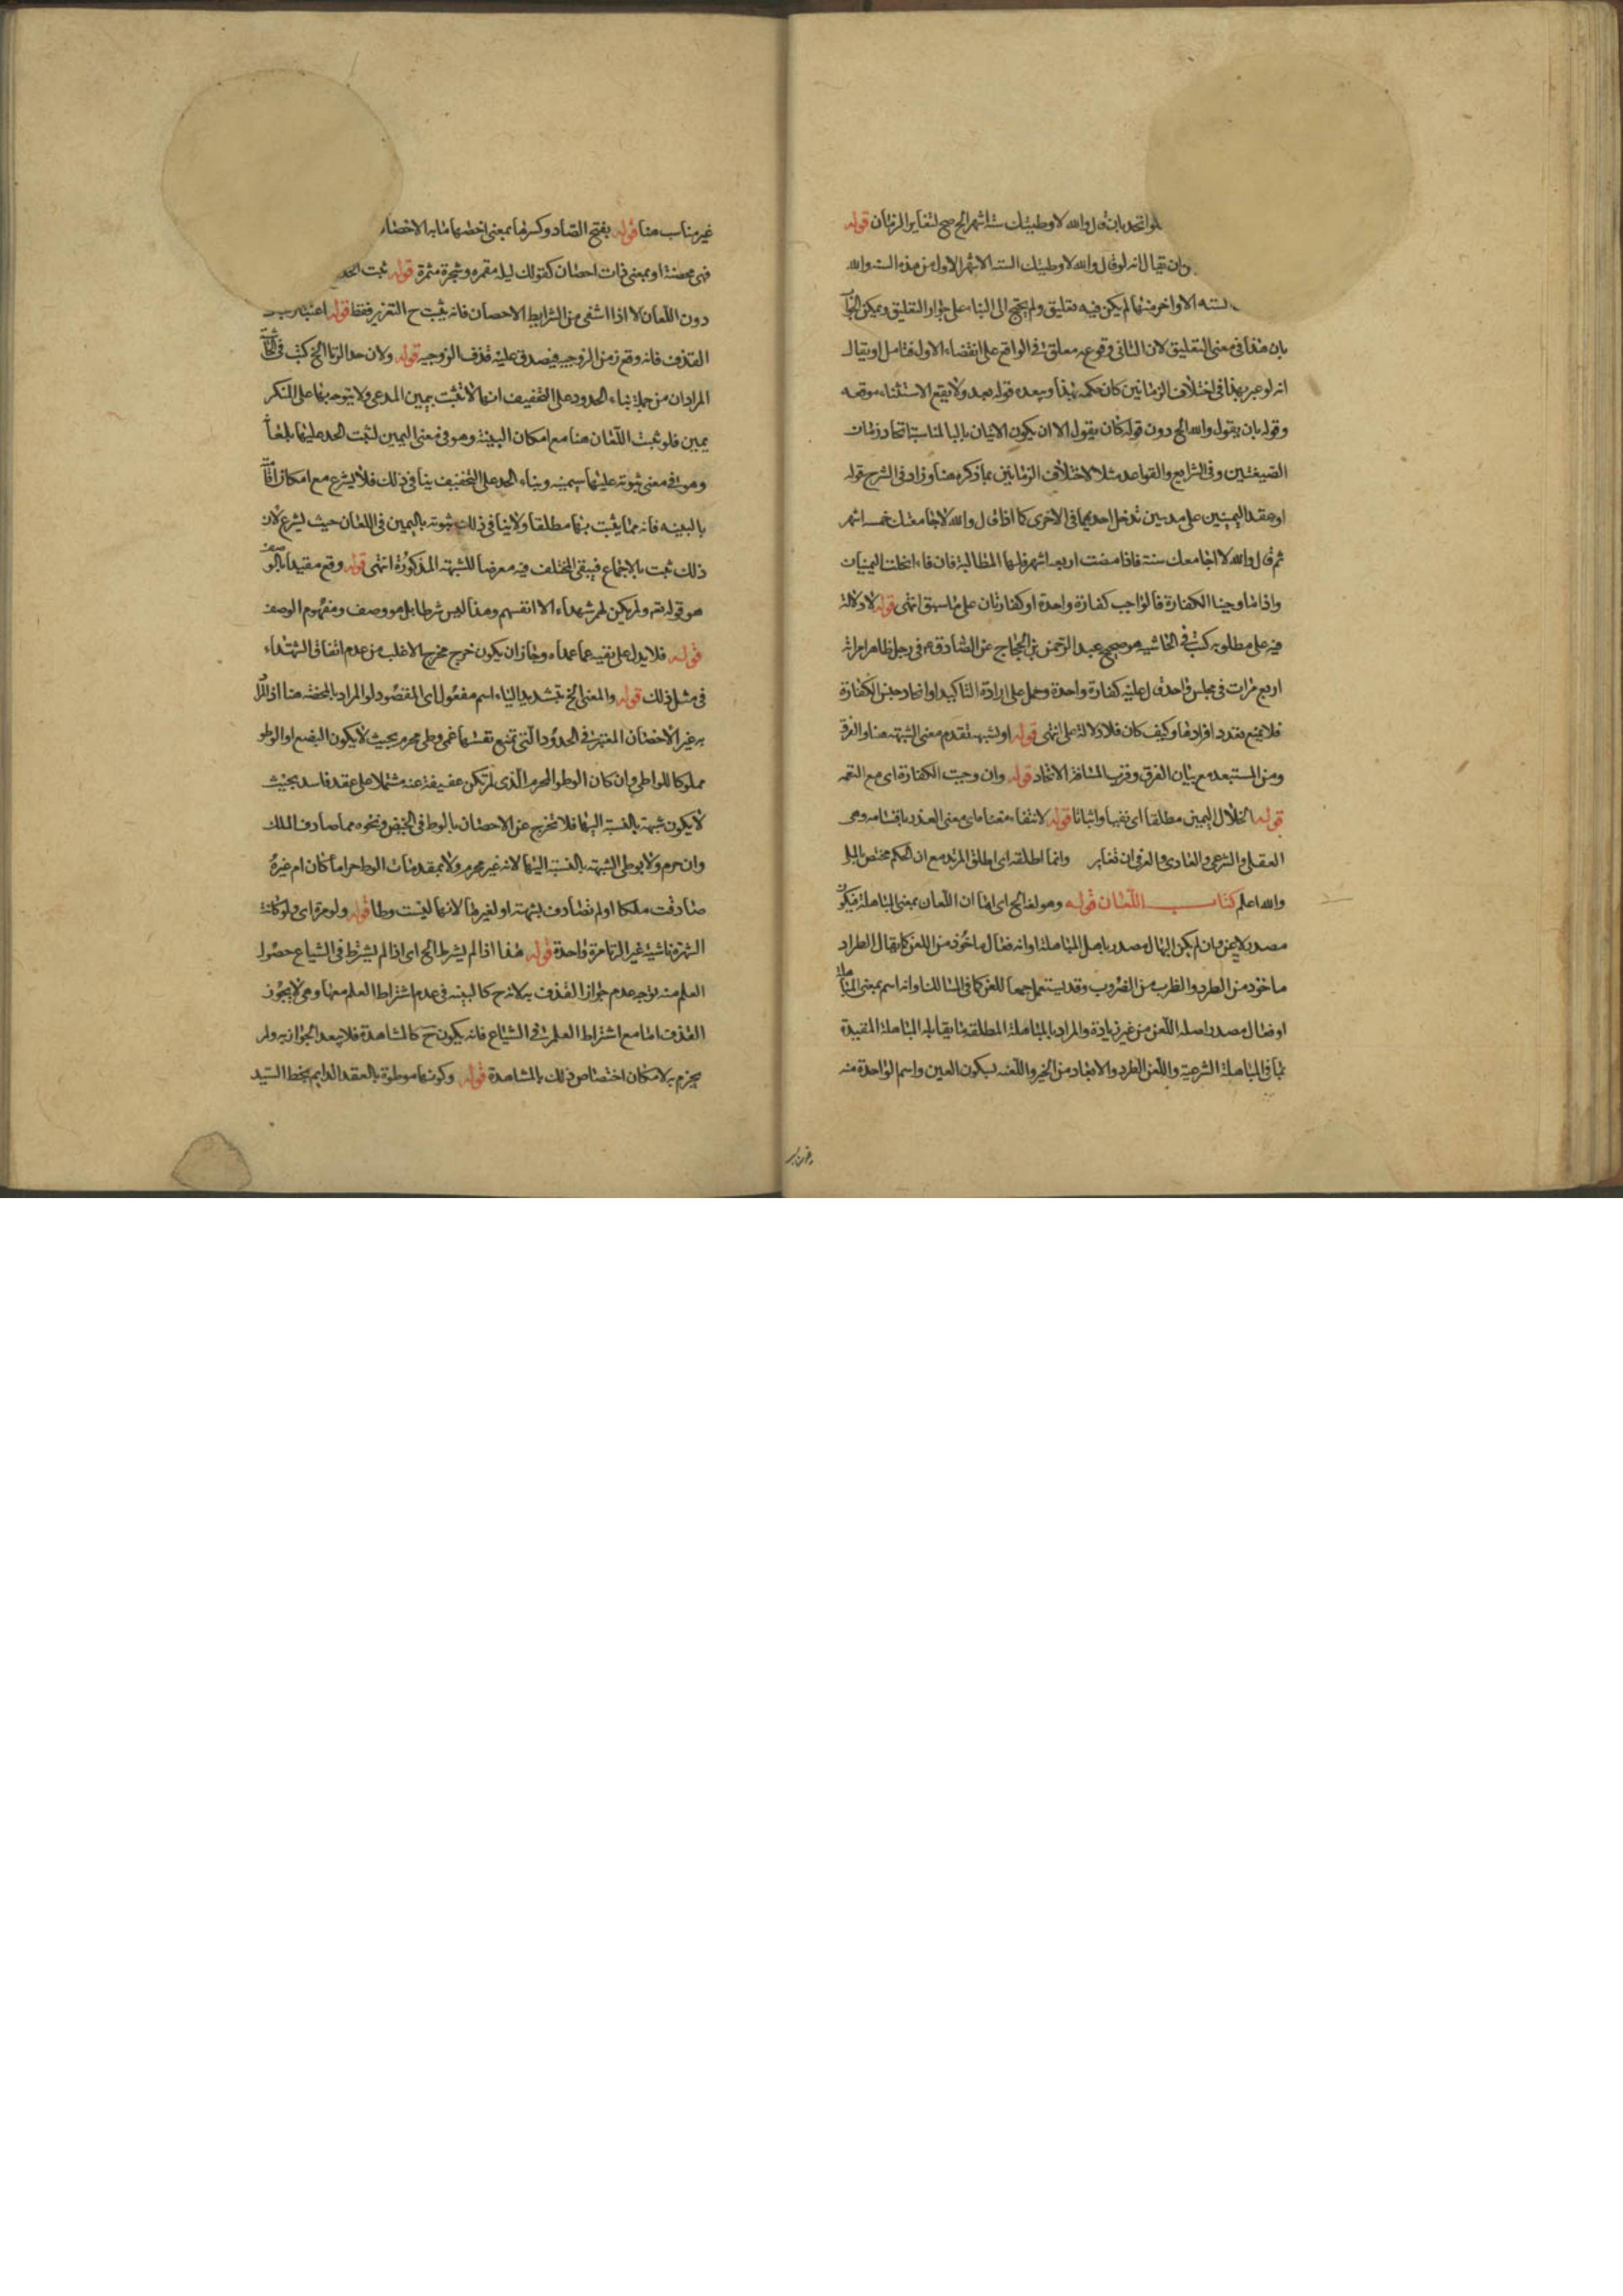 لو اتحد بان قال والله لا وطيتك ستة اشهر الخ صح لتغاير الزمان قوله
وان يقال انه لو قال والله لا وطيتك الستة الاشهر الاول من هذه السنة والله
الستة الاواخر منها لم يكن فيه تعليق ولم يحتج الى البناء على جواز التعليق ويمكن
بان هذا في معنى التعليق لان الثاني وقوعه معلق في الواقع على انقضاء الاول فتامل او يقال
انه لو عبر بهذا في اختلاف الزمانين كان حكمه بهذا وبعده قوله بعد ولا يقع الاستثناء موقعه
وقوله بان يقول والله الخ دون قوله كان يقول الا ان يكون الاتيان بالبا لمناسبة اتحاد زمان
الصيغتين وفي الشرايع والقواعد مثلا لاختلاف الزمانين بما ذكره هنا وزاد في الشرح قوله
او عقد اليمينين على مدتين تدخل احديهما في الاخرى كما اذا قال والله لا جامعتك خمسة اشهر
ثم قال والله لا اجامعك سنة فاذا مضت اربعة اشهر فلها المطالبة فان فاء انحلت اليمينان
واذا اوجبنا الكفارة فالواجب كفارة واحدة او كفارتان على ما سبق انتهى قوله لا دلالة
فيه على مطلوبه كتب في الحاشية هو صحيح عبد الرحمن بن الحجاج عن الصادق ع في رجل ظاهر امراته
اربع مرات في مجلس واحد قال عليه كفارة واحدة وحمل على ارادة التاكيد او اتحاد جنس الكفارة
فلا يمنع تعدد افرادها وكيف كان فلا دلالة على انتهى قوله او لشبهة تقدم معنى الشبهة هنا والفرق
ومن المستبعد مع بيان الفرق وقرب المسافة الاتحاد قوله وان وجبت الكفارة اى مع التعمد
قوله انحلال اليمين مطلقا اى نفيا واثباتا قوله لانتفاء معنا ماى معنى العذر باقسامه وهى
العقلى والشرعى والعادى والعرفى ان تغاير وانما اطلقه اى اطلق المرتد مع ان الحكم مختص بالملى
والله اعلم كتاب اللعان قوله وهو لغة الخ اى اما ان اللعان بمعنى المباهلة فيكون
مصدر لاعن وان لم يكن البهال مصدر باهل المباهلة او انه فعال ماخوذ من اللعن كما يقال الطراد
ماخوذ من الطرد والظرب من الضروب وقد يستعمل جمعا للعن كما في السالك او انه اسم بمعنى المباهلة
او فعال مصدر اصله اللعن من غير زيادة والمراد بالمباهلة المطلقة ما يقابله المباهلة المقيدة
باقى المباهلة الشرعية واللعن الطرد والابعاد من الخير واللعنة بسكون العين واسم الواحدة منه
غير مناسب هنا قوله بفتح الصاد وكسرها بمعنى احضها ما به الاحصان
فهى محصنة او بمعنى ذات احصان كقولك ليلة مقمرة وشجرة مثمرة قوله ثبت الحد
دون اللعان لا اذا انتفى من الشرايط الاحصان فانه يثبت ح التعزير فقط قوله اعتبارا
القذف فانه وقع زمن الزوجية فيصدق عليه قذف الزوجية قوله ولان حد الزنا الخ كتب في الحاشية
المراد ان من جملة بناء الحدود على التخفيف انها لا تثبت بيمين المدعى ولا يتوجه بها على المنكر
يمين فلو ثبت اللعان هنا مع امكان البينة وهو في معنى اليمين لثبت الحد عليها بلعانه
وهو في معنى ثبوته عليها بيمينه وبناء الحد على التخفيف ينافي ذلك فلا يشرع مع امكان اقامته
بالبينة فانه مما يثبت بها مطلقا ولا ينافي ذلك ثبوته باليمين في اللعان حيث يشرع لان
ذلك ثبت بالاجماع فيبقى المختلف فيه معرضا للشبهة المذكورة انتهى قوله وقع مقيدا بالوصف
هو قوله تعه ولم يكن لهم شهداء الا انفسهم وهذا ليس شرطا بل هو وصف ومفهوم الوصف
قوله فلا يدل على نفيه عما عداه وجاز ان يكون خرج مخرج الاغلب من عدم اتفاق الشهداء
في مثل ذلك قوله والمعنى الخ بتشديد الياء اسم مفعول اى المقصود لو المراد بالمحصنة هنا اذ المراد
به غير الاحصان المعتبر في الحدود التى تمنع نفسها عن وطى محرم بحيث لا يكون البضع او الوطو
مملوكا للواطى وان كان الوطو المحرم الذى لم تكن عفيفة عنه مشتملا على عقد فاسد بحيث
لا يكون شبهة بالنسبة اليها فلا تخرج عن الاحصان بالوطى في الحيض ونحوه مما صادف الملك
وان حرم ولا بوطى الشبهة بالنسبة اليها لانه غير محرم ولا بمقدمات الوطى حراما كان ام غيره
صادفت ملكا او لم تصادف بشبهة او لغيرها لانها ليست وطا قوله ولو مرة اى ولو كانت
الشهرة ناشية غير الزنا مرة واحدة قوله هذا اذا لم يشرط الخ اى اذا لم يشترط في الشياع حصول
العلم منه توجه عدم جواز القذف به لانه ح كالبينة في عدم اشتراط العلم معها وهى لا يجوز
القذف اما مع اشتراط العلم في الشياع فانه يكون ح كالمشاهدة فلا يبعد الجواز به ولم
يجزم به لامكان اختصاص ذلك بالمشاهدة قوله وكونها موطوة بالعقد الدايم بخط السيد